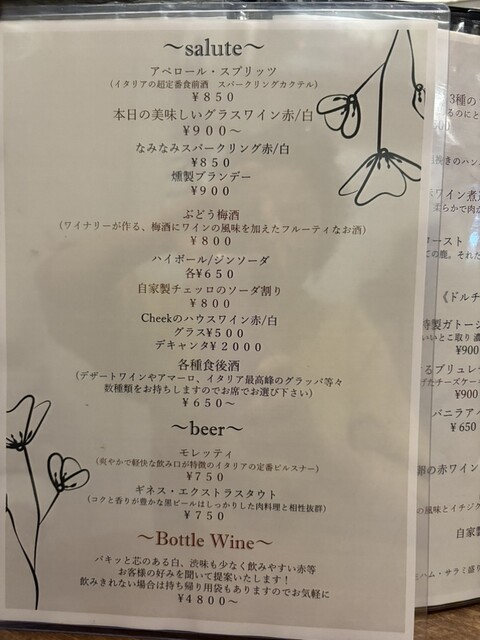 ～salute～
アペロール・スプリッツ
(イタリアの超定番食前酒 スパークリングカクテル)
¥850
本日の美味しいグラスワイン赤/白
¥900～
なみなみスパークリング赤/白
¥850
燻製ブランデー
¥900
ぶどう梅酒
(ワイナリーが作る、梅酒にワインの風味を加えたフルーティなお酒)
¥800
ハイボール/ジンソーダ
各¥650
自家製チェッロのソーダ割り
¥800
Cheekのハウスワイン赤/白
グラス¥500
デキャンタ¥2000
各種食後酒
(デザートワインやアマーロ、イタリア最高峰のグラッパ等々
数種類をお持ちしますのでお席でお選び下さい)
¥650～
～beer～
モレッティ
(爽やかで軽快な飲み口が特徴のイタリアの定番ピルスナー)
¥750
ギネス・エクストラスタウト
(コクと香りが豊かな黒ビールはしっかりした肉料理と相性抜群)
¥750
～Bottle Wine～
パキッと芯のある白、渋味も少なく飲みやすい赤等
お客様の好みを聞いて提案いたします！
飲みきれない場合は持ち帰り用袋もありますのでお気軽に
¥4800～
3種の
るのにと
挽きのハン
ワイン煮
らかで肉
ースト
ての鹿。それた
《ドルチ
特製ガトー
いいとこ取り 濃
¥900
るブリュレ
げたチーズケー
¥900
バニラアイ
¥650
の赤ワイン
の風味とイチジク
自家製
ハム・サラミ盛